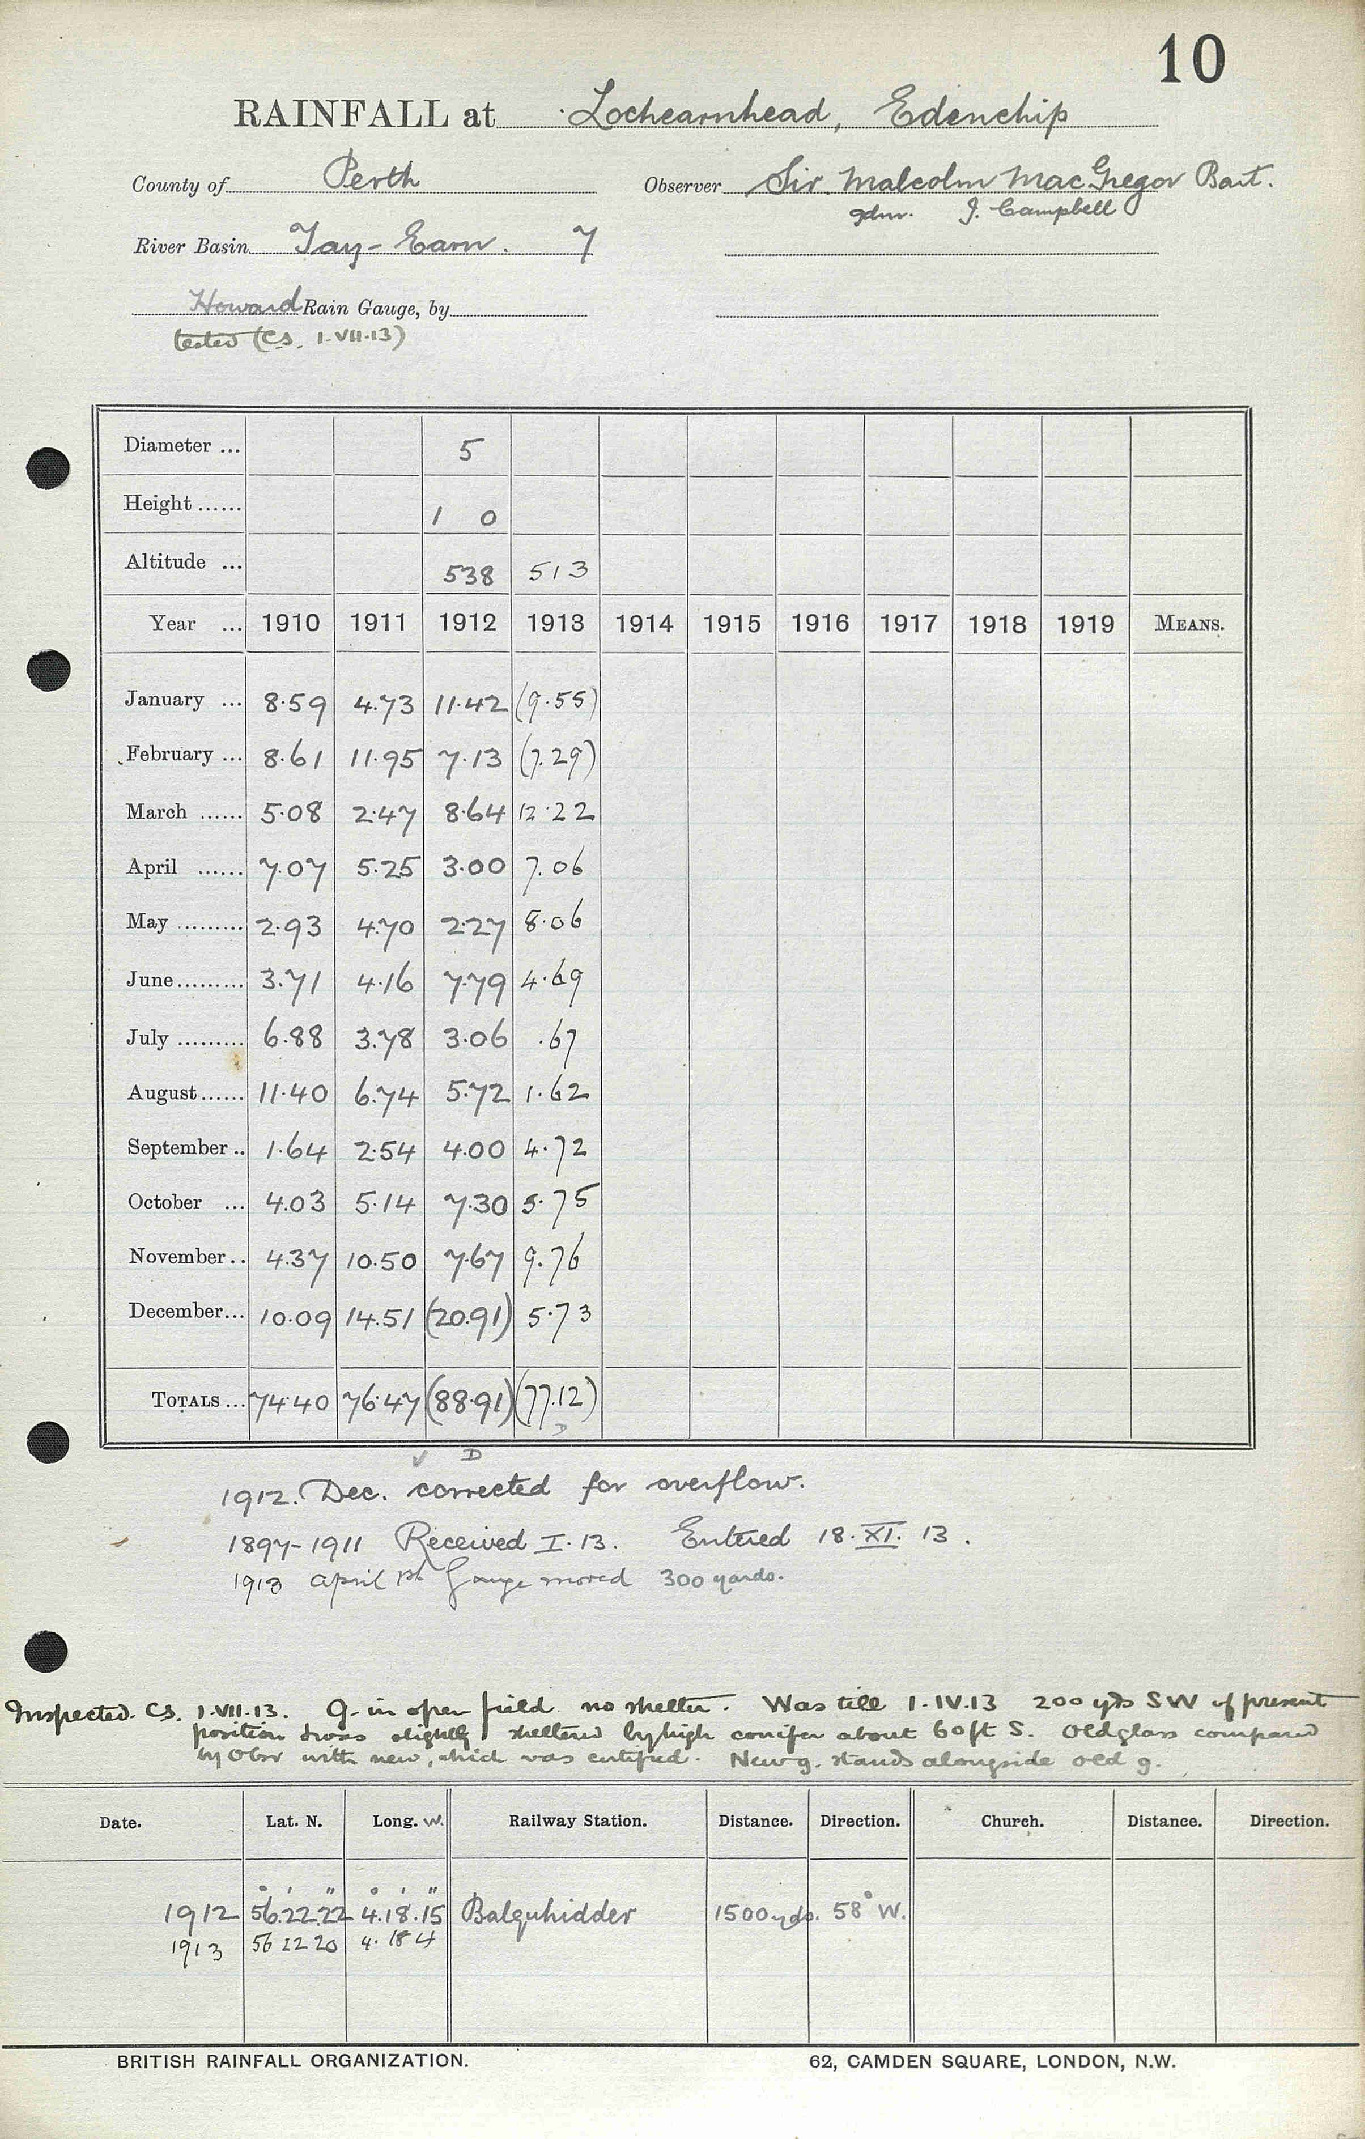 10
RAINFALL at Lochearnhead, Edenchip
County of Perth Observer Sir Malcolm MacGregor Bart.
gdnr. J. Campbell
River Basin Tay - Earn. 7
Howard Rain Gauge, by
tested (CS. 1.VII.13)
Diameter ... 5
Height ...... 1 0
Altitude ... 538 513
Year ... 1910 1911 1912 1913 1914 1915 1916 1917 1918 1919 MEANS.
January ... 8.59 4.73 11.42 (9.55)
February ... 8.61 11.95 7.13 (7.29)
March ...... 5.08 2.47 8.64 12.22
April ...... 7.07 5.25 3.00 7.06
May ......... 2.93 4.70 2.27 8.06
June ......... 3.71 4.16 7.79 4.69
July ......... 6.88 3.78 3.06 .67
August ...... 11.40 6.74 5.72 1.62
September .. 1.64 2.54 4.00 4.72
October ... 4.03 5.14 7.30 5.75
November .. 4.37 10.50 7.67 9.76
December ... 10.09 14.51 (20.91) 5.73
TOTALS ... 74.40 76.47 (88.91) (77.12)
D
D
1912. Dec. corrected for overflow.
1897-1911 Received I.13. Entered 18.XI.13.
1913 April 1st Gauge moved 300 yards.
Inspected. CS. 1.VII.13. G. in open field no shelter. Was till 1.IV.13 200 yds SW of present
position & was slightly sheltered by high conifer about 60ft S. Old glass compared
by Obsr with new, which was certified. New g. stands alongside old g.
Date. Lat. N. Long. W. Railway Station. Distance. Direction. Church. Distance. Direction.
° ' " ° ' "
1912 56.22.22 4.18.15 Balquhidder 1500 yds. 58° W.
1913 56 22 20 4. 18 4
BRITISH RAINFALL ORGANIZATION. 62, CAMDEN SQUARE, LONDON, N.W.